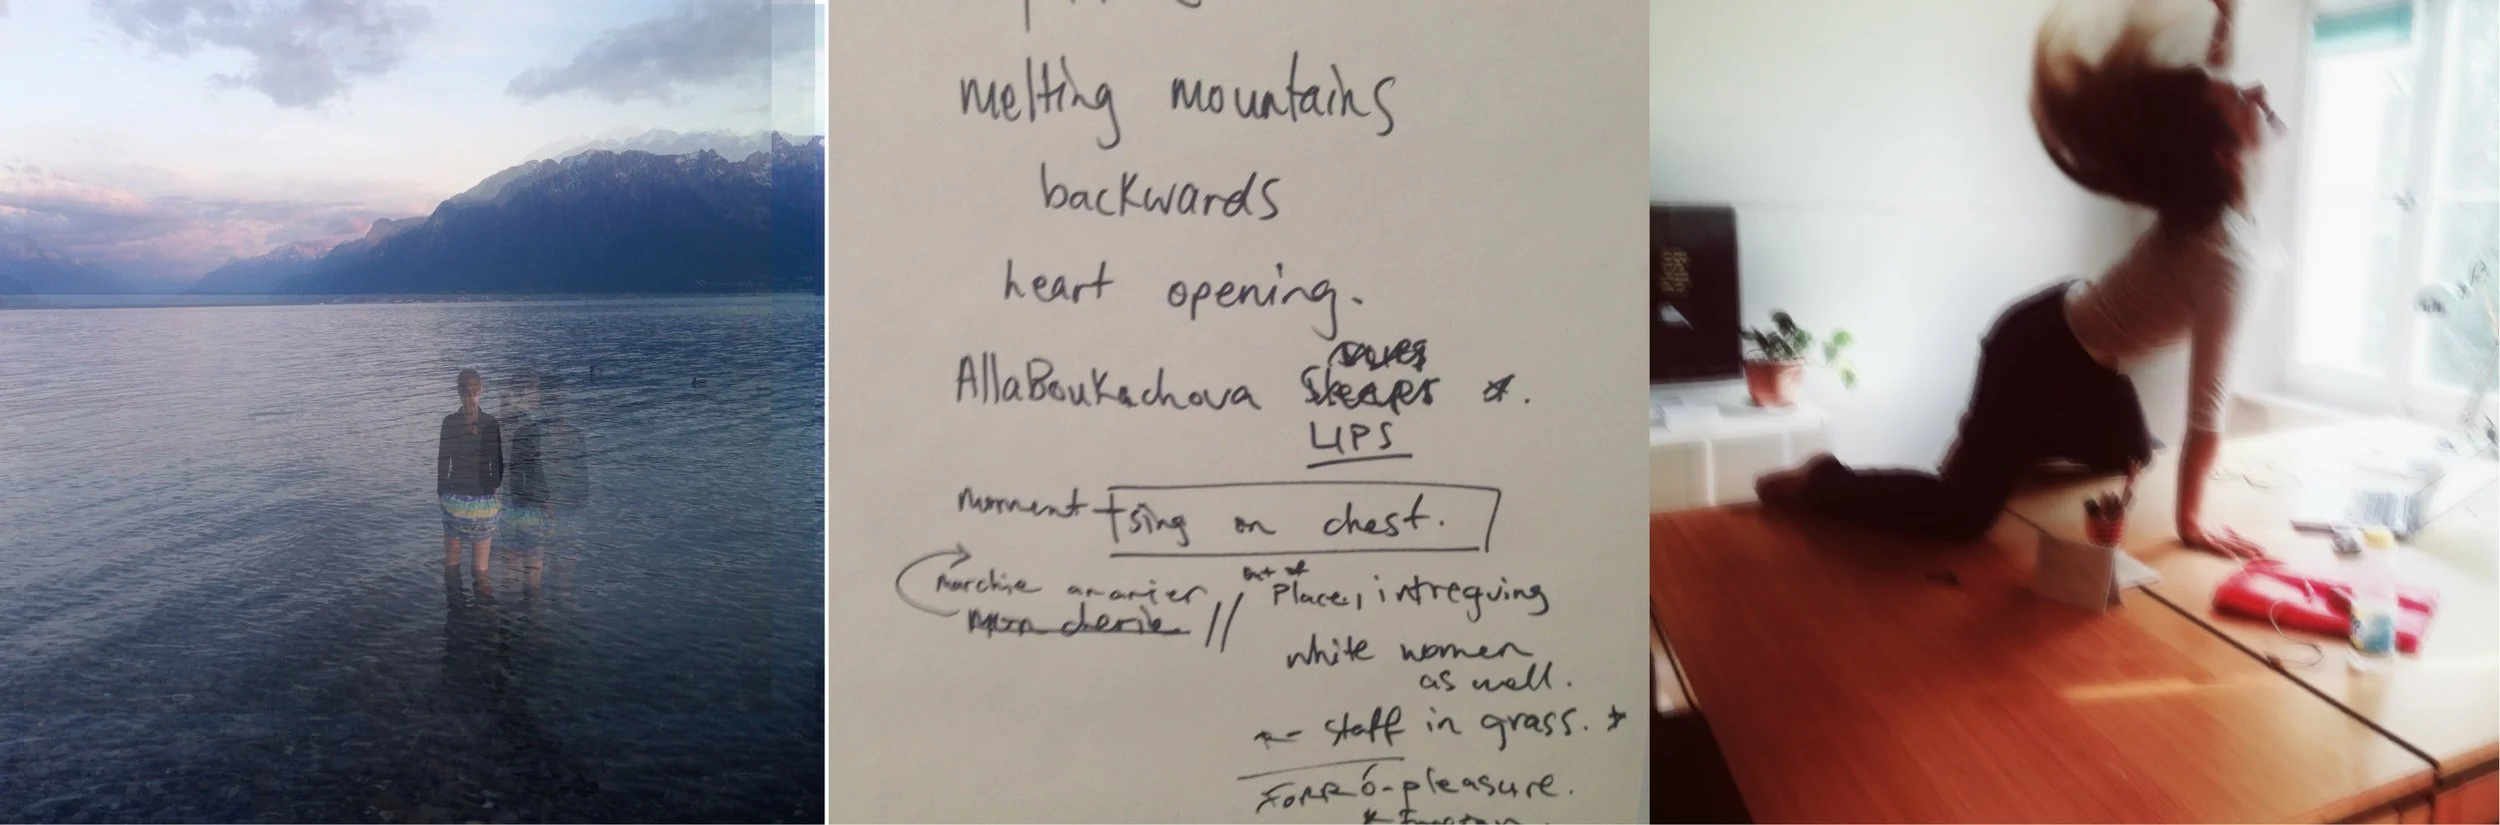 melting mountains
backwards
heart opening.
AllaBoukachova Sleeps *.
LIPS
moment sing on chest.
marchie ararier // out of Place, intreguing
white women
as well.
staff in grass. *
FORRÓ-pleasure.